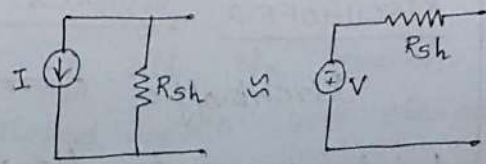 I
Rsh
≈
Rsh
∓
V